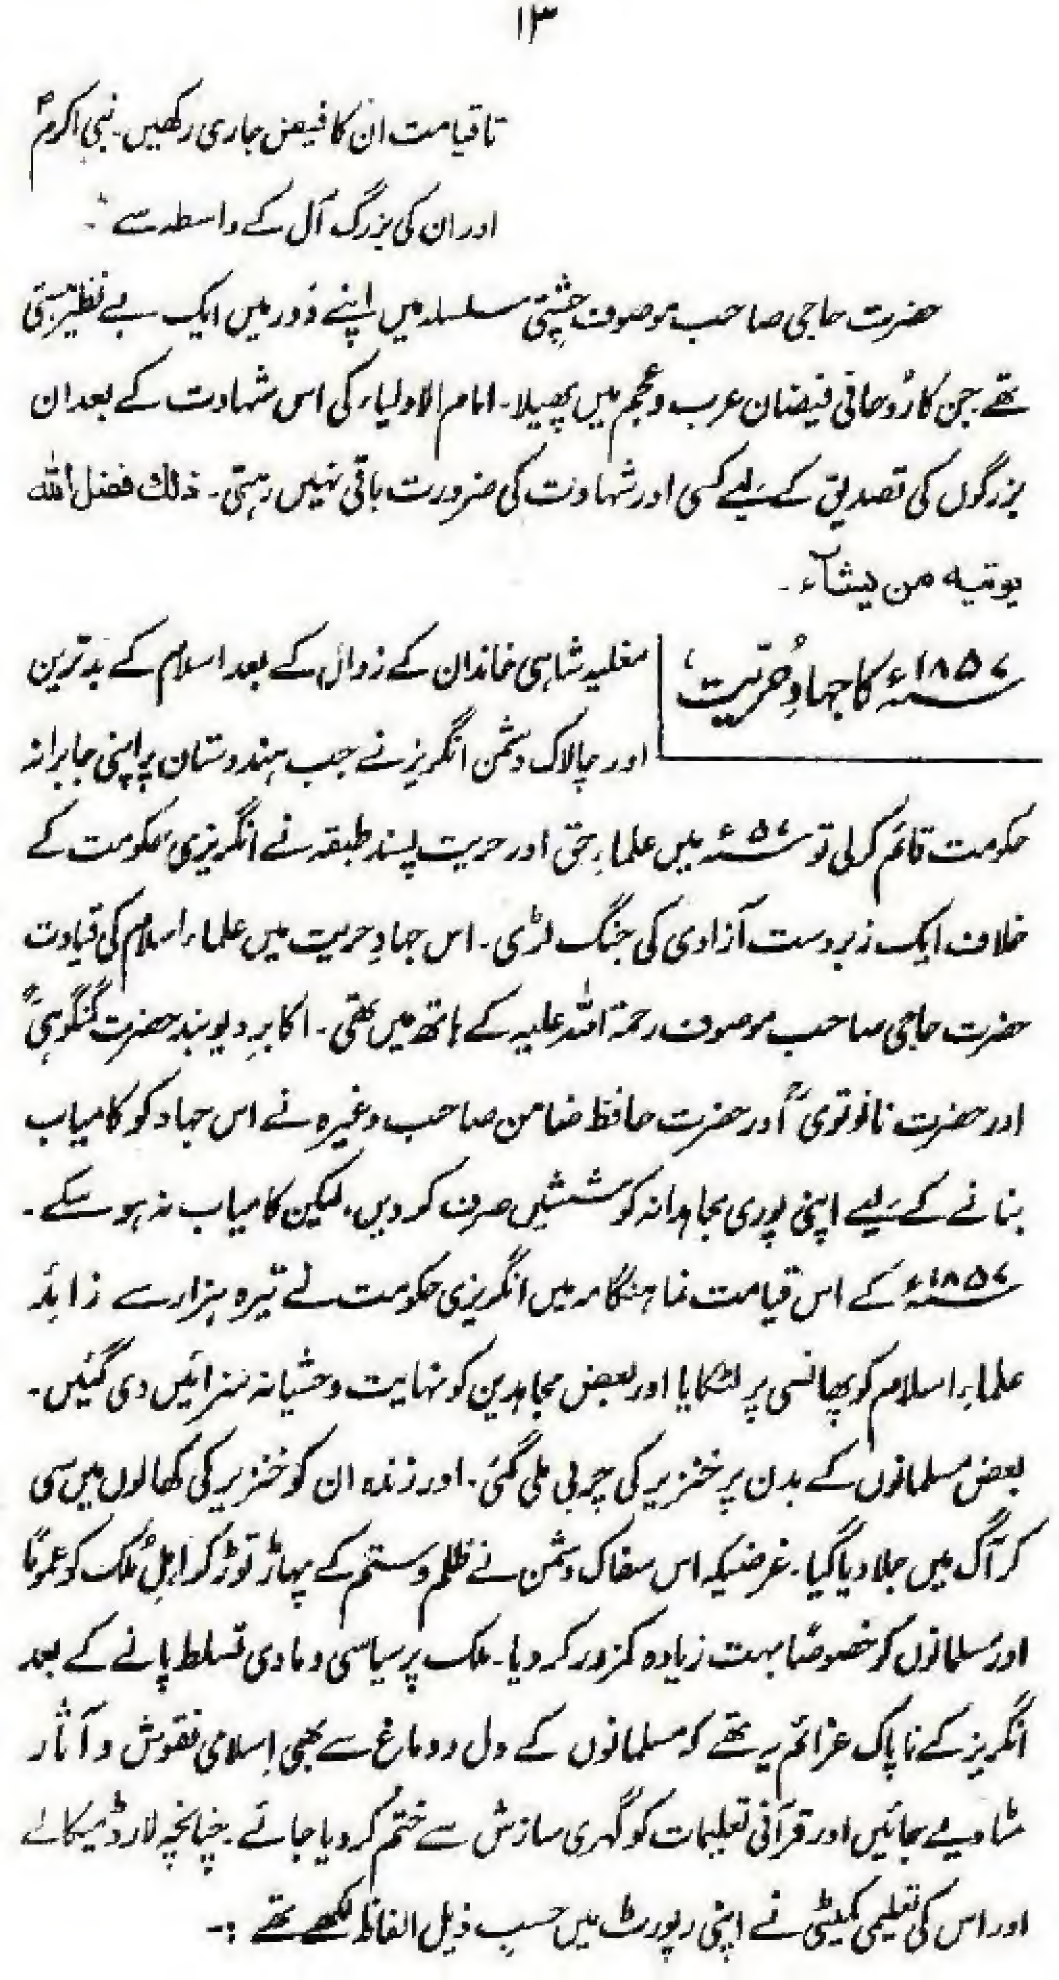 ۱۳
تا قیامت ان کا فیض جاری رکھیں۔ نبی اکرمؐ
اور ان کی بزرگ آل کے واسطہ سے"۔
حضرت حاجی صاحب موصوف چشتی سلسلہ میں اپنے دَور میں ایک بے نظیر ہستی
تھے۔ جن کا رُوحانی فیضان عرب و عجم میں پھیلا۔ امام الاولیاء کی اس شہادت کے بعد ان
بزرگوں کی تصدیق کے لیے کسی اور شہادت کی ضرورت باقی نہیں رہتی۔ ذلك فضل الله
يوتيه من يشآء۔
۱۸۵۷ء کا جہادِ حُرّیت،
مغلیہ شاہی خاندان کے زوال کے بعد اسلام کے بدترین
اور چالاک دشمن انگریز نے جب ہندوستان پر اپنی جابرانہ
حکومت قائم کر لی تو ۵۷ء میں علماءِ حق اور حریت پسند طبقہ نے انگریزی حکومت کے
خلاف ایک زبردست آزادی کی جنگ لڑی۔ اس جہادِ حریت میں علماء اسلام کی قیادت
حضرت حاجی صاحب موصوف رحمۃ اللہ علیہ کے ہاتھ میں تھی۔ اکابرِ دیوبند حضرت گنگوہیؒ
اور حضرت نانوتویؒ اور حضرت حافظ ضامن صاحب وغیرہ نے اس جہاد کو کامیاب
بنانے کے لیے اپنی پوری مجاہدانہ کوششیں صرف کر دیں، لیکن کامیاب نہ ہو سکے۔
۱۸۵۷ء کے اس قیامت نما ہنگامہ میں انگریزی حکومت نے تیرہ ہزار سے زائد
علماءِ اسلام کو پھانسی پر لٹکایا اور بعض مجاہدین کو نہایت وحشیانہ سزائیں دی گئیں۔
بعض مسلمانوں کے بدن پر خنزیر کی چربی ملی گئی۔ اور زندہ ان کو خنزیر کی کھالوں میں سی
کر آگ میں جلا دیا گیا۔ غرضیکہ اس سفاک دشمن نے ظلم و ستم کے پہاڑ توڑ کر اہلِ مُلک کو عمومًا
اور مسلمانوں کو خصوصًا بہت زیادہ کمزور کر دیا۔ ملک پر سیاسی و مادی تسلط پانے کے بعد
انگریز کے ناپاک عزائم یہ تھے کہ مسلمانوں کے دل و دماغ سے بھی اسلامی نقوش و آثار
مٹا دیے جائیں اور قرآنی تعلیمات کو گہری سازش سے ختم کر دیا جائے۔ چنانچہ لارڈ میکالے
اور اس کی تعلیمی کمیٹی نے اپنی رپورٹ میں حسبِ ذیل الفاظ لکھے تھے :۔